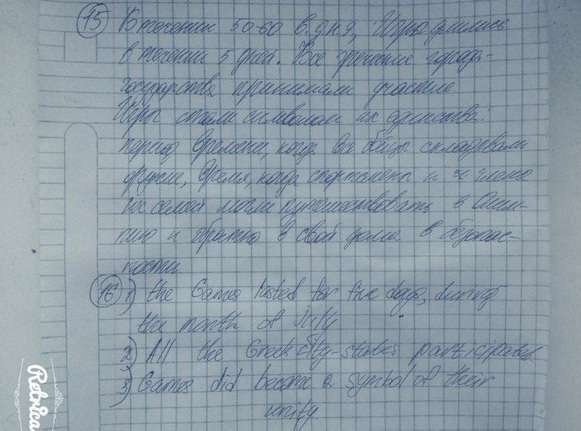 15
В течении 50-60 в. д н э, Игры длились
в течении 5 дней. Все греческие города-
государства принимали участие
Игры стали символом их единства.
период времени, когда все бойцы складывали
оружие, время, когда спортсмены и члены
их семей могли путешествовать в Олим-
пию и обратно в свои дома в безопас-
ности
16 1) the Games lasted for five days, during
the month of July
2) All the Greek City-states participated
3) Games did become a symbol of their
unity
Retrica